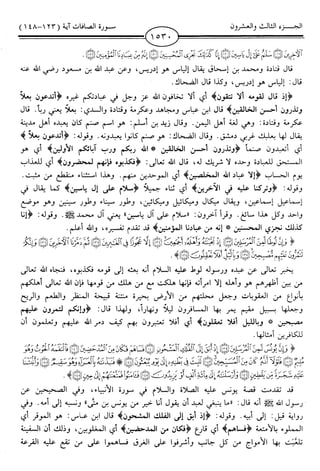 الجــزء الثالث والعشرون
١٥٣٠
سورة الصافات آية (١٢٣-١٤٨)
الْآخِرِينَ سَلَامٌ عَلَى إِلْ يَاسِينَ إِنَّا كَذَلِكَ نَجْزِي الْمُحْسِنِينَ إِنَّهُ مِنْ عِبَادِنَا الْمُؤْمِنِينَ
قال قتادة ومحمد بن إسحاق يقال إلياس هو إدريس، وعن عبد الله بن مسعود رضي الله عنه
قال: إلياس هو إدريس، وكذا قال الضحاك.
﴿إذ قال لقومه ألا تتقون﴾ أي ألا تخافون الله عز وجل في عبادتكم غيره ﴿أتدعون بعلاً
وتذرون أحسن الخالقين﴾ قال ابن عباس ومجاهد وعكرمة وقتادة والسدي: بعلاً يعني رباً. قال
عكرمة وقتادة: وهي لغة أهل اليمن. وقال زيد بن أسلم: هو اسم صنم كان يعبده أهل مدينة
يقال لها بعلبك غربي دمشق. وقال الضحاك: هو صنم كانوا يعبدونه. وقوله: ﴿أتدعون بعلاً﴾
أي أتعبدون صنماً ﴿وتذرون أحسن الخالقين * الله ربكم ورب آبائكم الأولين﴾ أي هو
المستحق للعبادة وحده لا شريك له، قال الله تعالى: ﴿فكذبوه فإنهم لمحضرون﴾ أي للعذاب
يوم الحساب ﴿إلا عباد الله المخلصين﴾ أي الموحدين منهم. وهذا استثناء منقطع من مثبت.
وقوله: ﴿وتركنا عليه في الآخرين﴾ أي ثناء جميلاً ﴿سلام على إل ياسين﴾ كما يقال في
إسماعيل إسماعين، ويقال ميكال وميكائيل وميكائين، وطور سيناء وطور سينين وهو موضع
واحد وكل هذا سائغ. وقرأ آخرون: ﴿سلام على آل ياسين﴾ يعني آل محمد ﷺ. وقوله: ﴿إنا
كذلك نجزي المحسنين * إنه من عبادنا المؤمنين﴾ قد تقدم تفسيره، والله أعلم.
وَإِنَّ لُوطًا لَّمِنَ الْمُرْسَلِينَ إِذْ نَجَّيْنَاهُ وَأَهْلَهُ أَجْمَعِينَ إِلَّا عَجُوزًا فِي الْغَابِرِينَ ثُمَّ دَمَّرْنَا الْآخَرِينَ وَإِنَّكُمْ
يخبر تعالى عن عبده ورسوله لوط عليه السلام أنه بعثه إلى قومه فكذبوه، فنجاه الله تعالى
من بين أظهرهم هو وأهله إلا امرأته فإنها هلكت مع من هلك من قومها فإن الله تعالى أهلكهم
بأنواع من العقوبات وجعل محلتهم من الأرض بحيرة منتنة قبيحة المنظر والطعم والريح
وجعلها بسبيل مقيم يمر بها المسافرون ليلاً ونهاراً، ولهذا قال: ﴿وإنكم لتمرون عليهم
مصبحين * وبالليل أفلا تعقلون﴾ أي أفلا تعتبرون بهم كيف دمر الله عليهم وتعلمون أن
للكافرين أمثالها.
وَإِنَّ يُونُسَ لَمِنَ الْمُرْسَلِينَ إِذْ أَبَقَ إِلَى الْفُلْكِ الْمَشْحُونِ فَسَاهَمَ فَكَانَ مِنَ الْمُدْحَضِينَ فَالْتَقَمَهُ الْحُوتُ وَهُوَ
قد تقدمت قصة يونس عليه الصلاة والسلام في سورة الأنبياء، وفي الصحيحين عن
رسول الله ﷺ أنه قال: «ما ينبغي لعبد أن يقول أنا خير من يونس بن متّى» ونسبه إلى أمه. وفي
رواية قيل: إلى أبيه. وقوله: ﴿إذ أبق إلى الفلك المشحون﴾ قال ابن عباس: هو الموقر أي
المملوء بالأمتعة ﴿فساهم﴾ أي قارع ﴿فكان من المدحضين﴾ أي المغلوبين، وذلك أن السفينة
تلعّبت بها الأمواج من كل جانب وأشرفوا على الغرق فساهموا على من تقع عليه القرعة